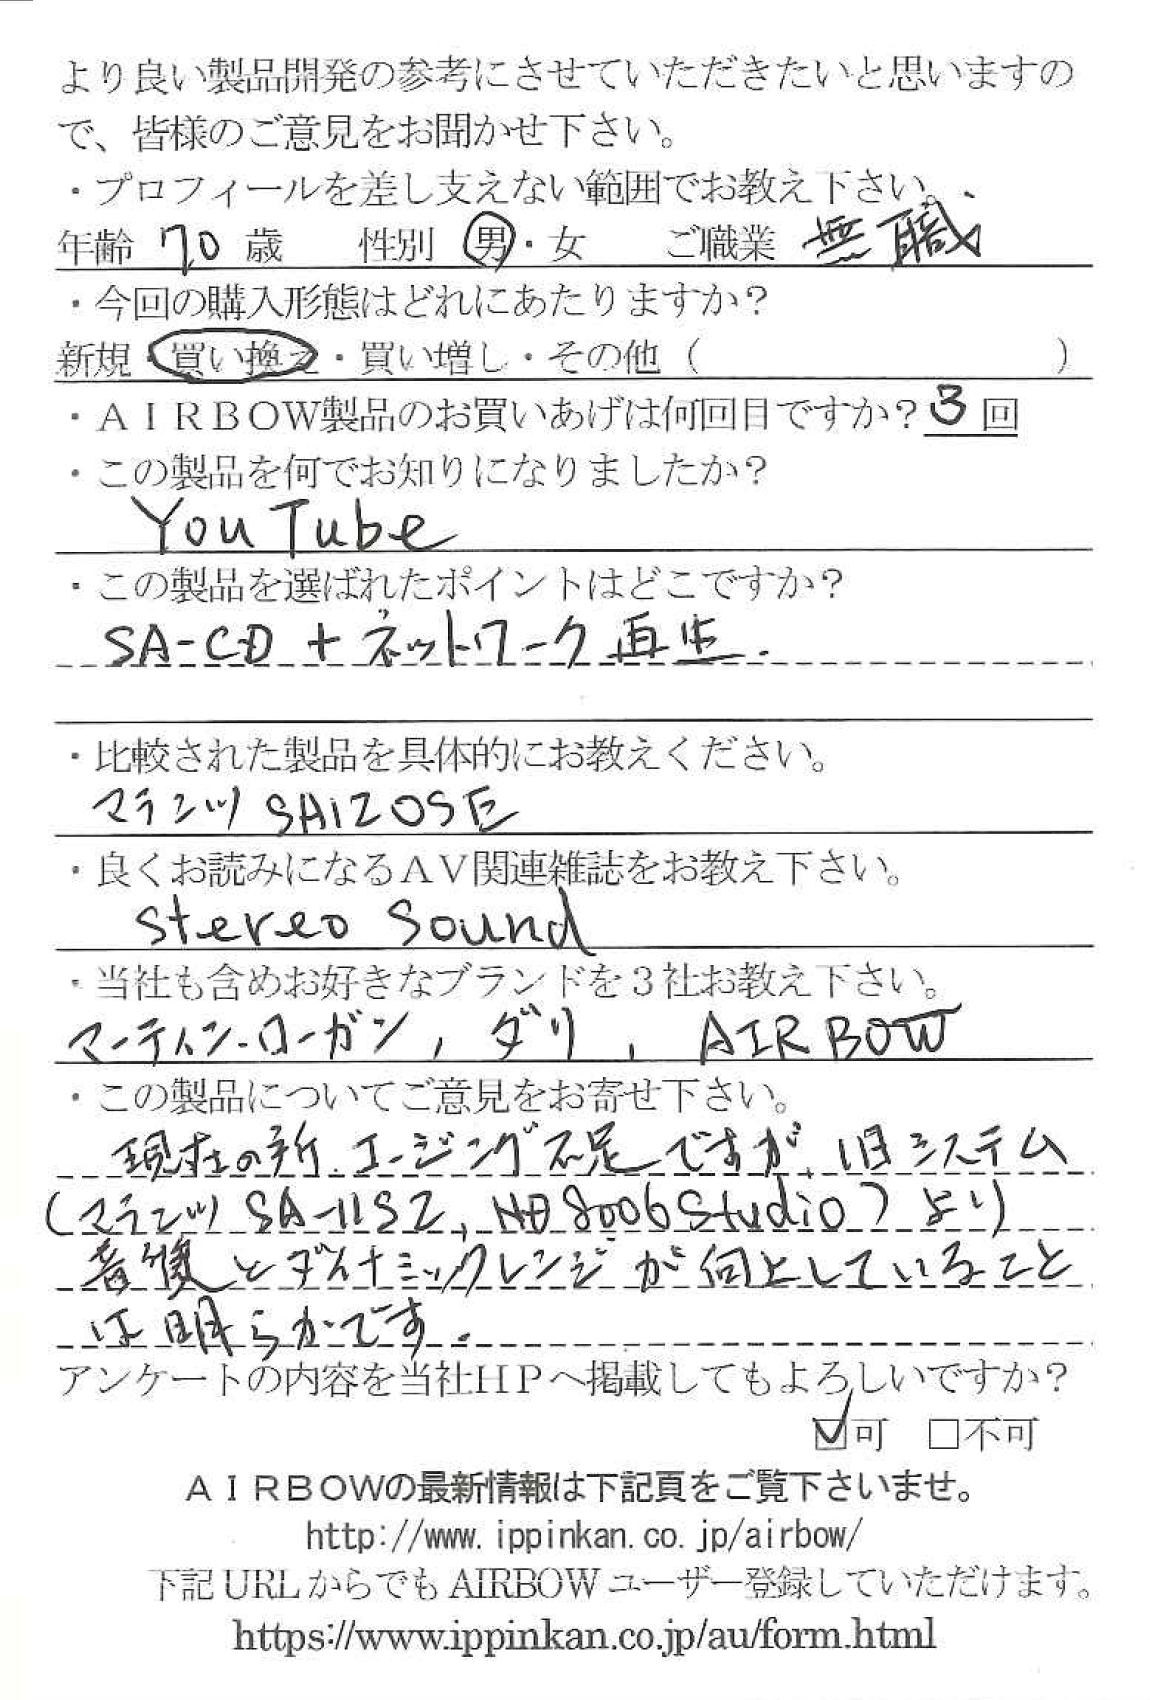 より良い製品開発の参考にさせていただきたいと思いますの
で、皆様のご意見をお聞かせ下さい。
・プロフィールを差し支えない範囲でお教え下さい。
年齢 70 歳 性別 男・女 ご職業 無職
・今回の購入形態はどれにあたりますか?
新規・買い換え・買い増し・その他（ ）
・ＡＩＲＢＯＷ製品のお買いあげは何回目ですか? 3 回
・この製品を何でお知りになりましたか?
YouTube
・この製品を選ばれたポイントはどこですか?
SA-CD + ネットワーク再生.
・比較された製品を具体的にお教えください。
マランツ SA12OSE
・良くお読みになるＡＶ関連雑誌をお教え下さい。
Stereo Sound
・当社も含めお好きなブランドを３社お教え下さい。
マーティン・ローガン, ダリ, AIRBOW
・この製品についてご意見をお寄せ下さい。
現在の所、エージング不足ですが、旧システム
(マランツ SA-11S2, ND8006Studio) より
音像とダイナミックレンジが向上していること
は明らかです.
アンケートの内容を当社ＨＰへ掲載してもよろしいですか?
☑可 □不可
ＡＩＲＢＯＷの最新情報は下記頁をご覧下さいませ。
http://www.ippinkan.co.jp/airbow/
下記 URL からでも AIRBOW ユーザー登録していただけます。
https://www.ippinkan.co.jp/au/form.html